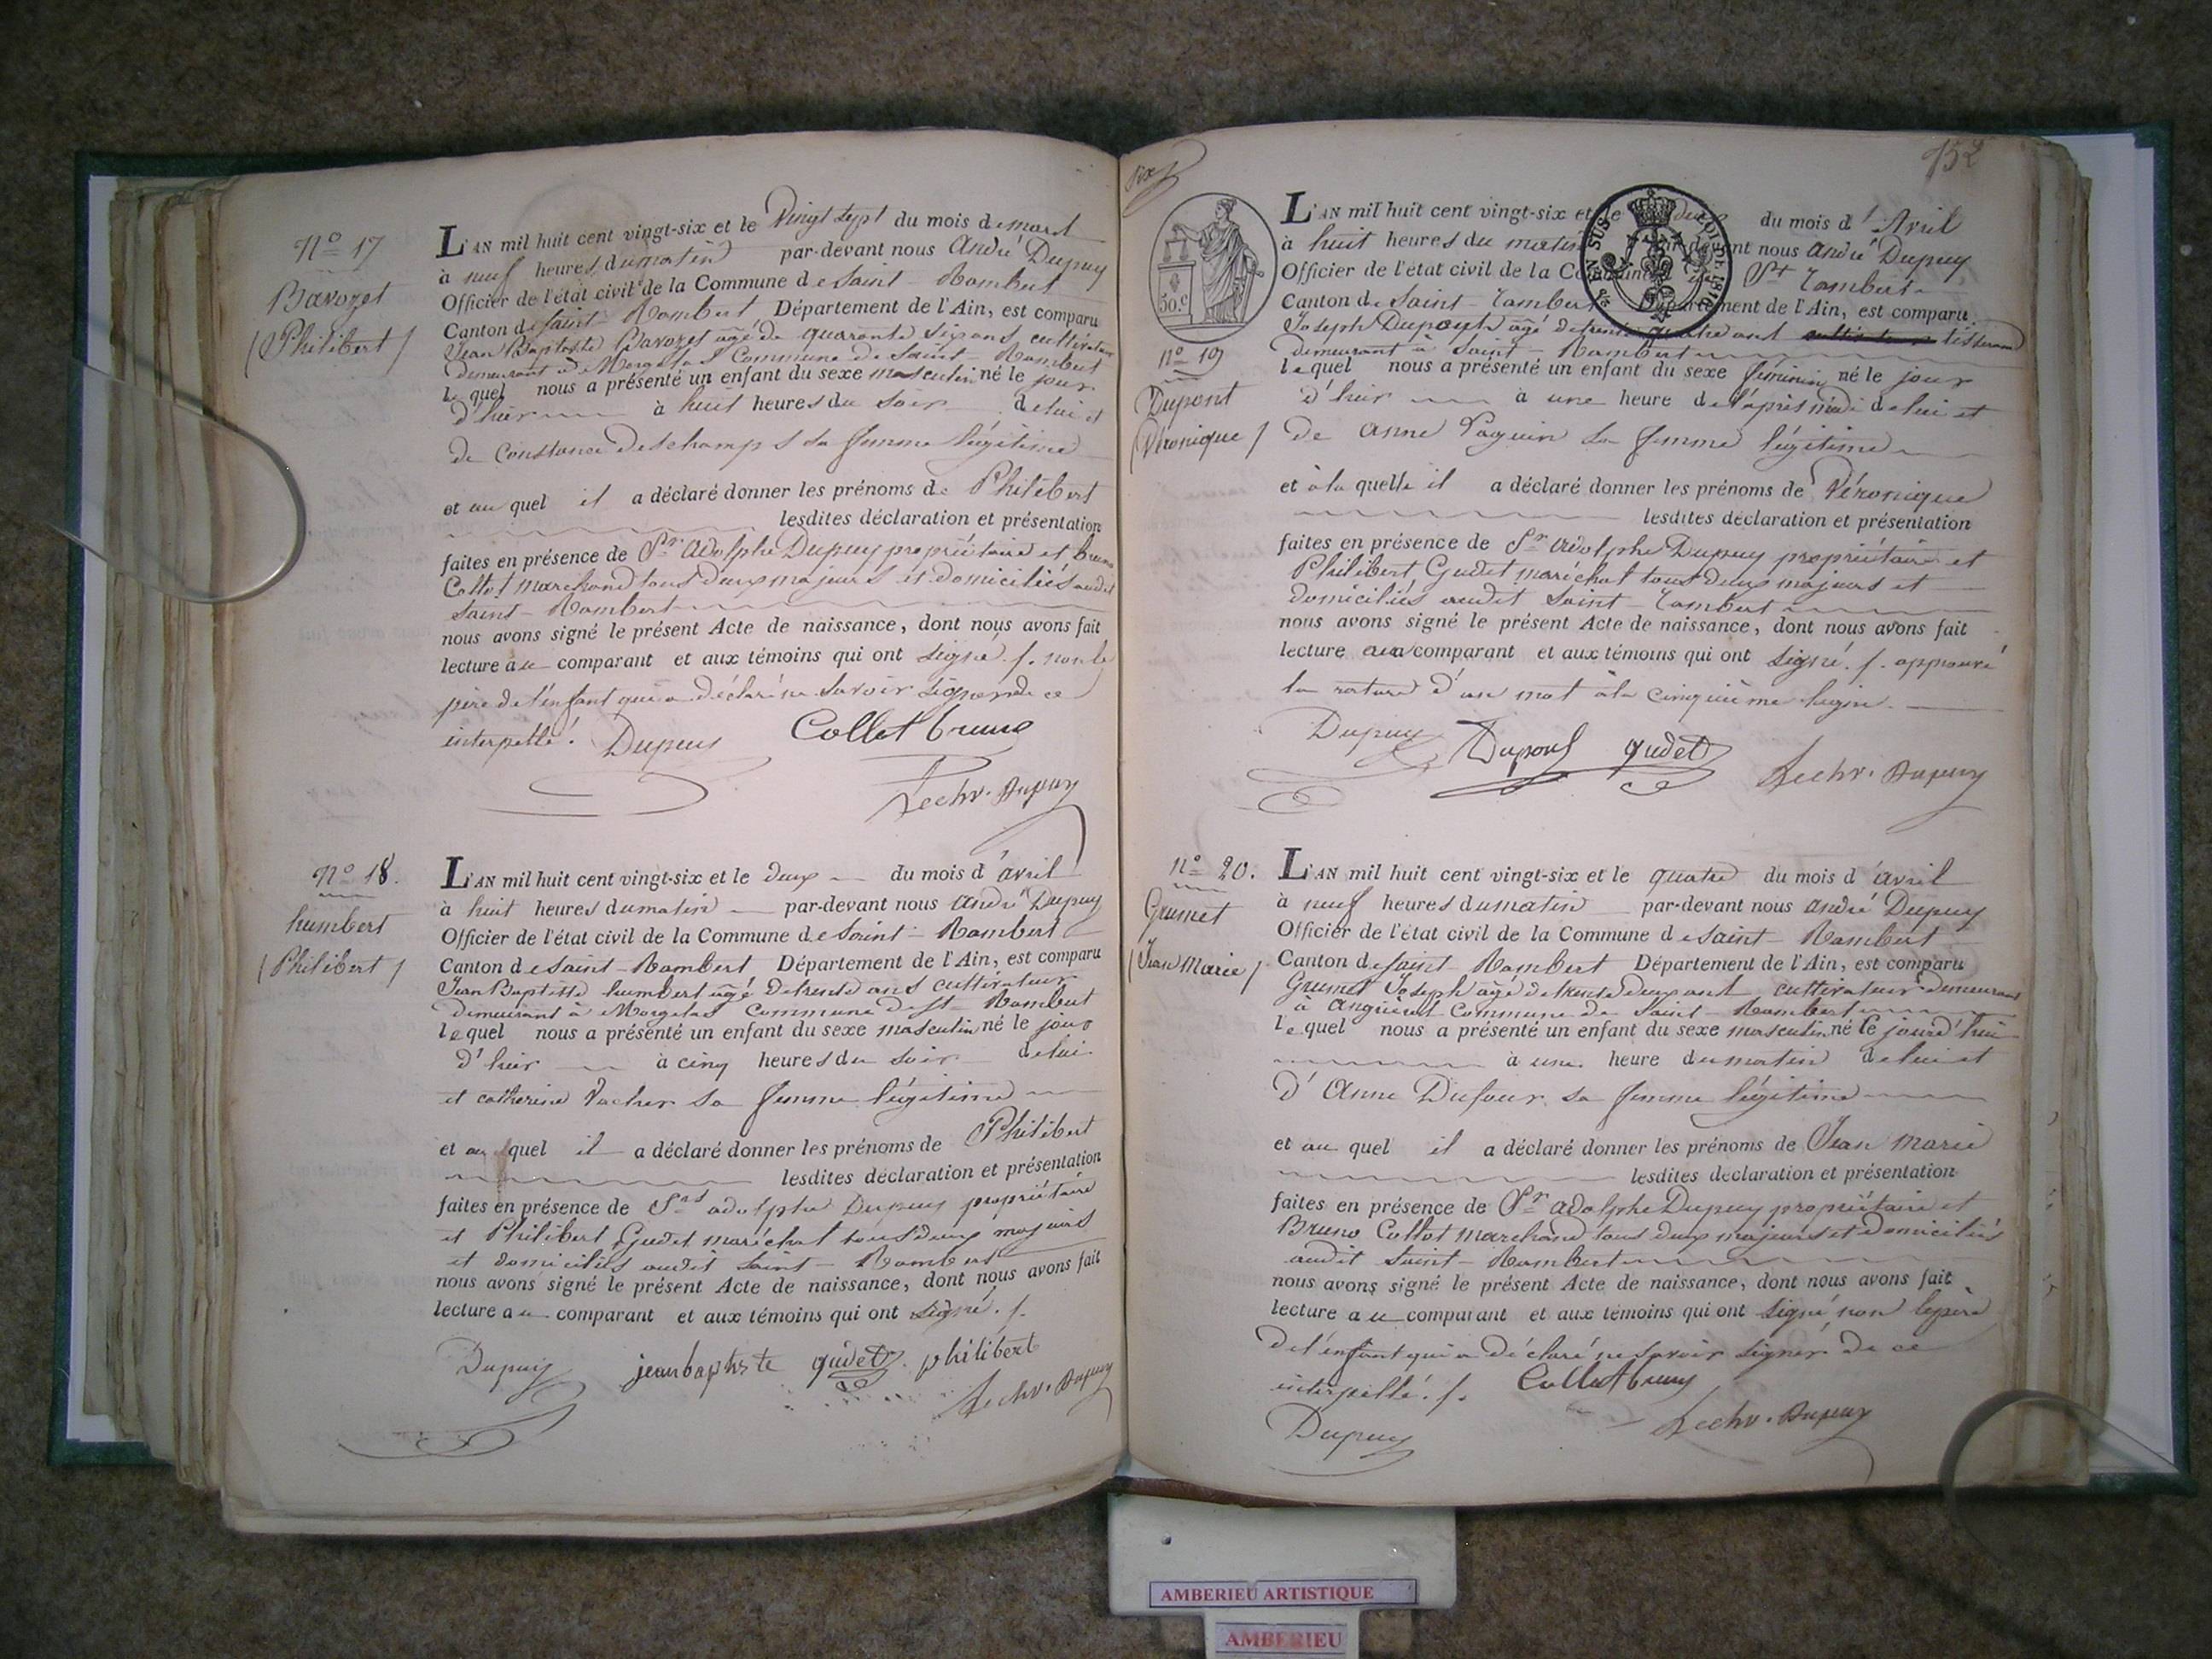 N° 17
Bavozet
(Philibert)
L'AN mil huit cent vingt-six et le Vingt sept du mois de mars
à neuf heures du matin par-devant nous André Dupuy
Officier de l'état civil de la Commune de Saint-Rambert
Canton de Saint-Rambert, Département de l'Ain, est comparu
Jean Baptiste Bavozet agé de quarante six ans cultivateur
demeurant à Morgelas Commune de Saint-Rambert
lequel nous a présenté un enfant du sexe masculin né le jour
d'hier à huit heures du soir de lui et
de Constance Deschamps sa femme légitime
et au quel il a déclaré donner les prénoms de Philibert
lesdites déclaration et présentation
faites en présence de Sr adolphe Dupuy propriétaire et bruno
Collet marchand tous deux majeurs et domiciliés audit
Saint-Rambert
nous avons signé le présent Acte de naissance, dont nous avons fait
lecture au comparant et aux témoins qui ont signé. /. non le
père de l'enfant qui a déclaré ne savoir signer de ce
interpellé. Dupuy Collet bruno
Dupuy
N° 18.
humbert
(Philibert)
L'AN mil huit cent vingt-six et le deux du mois d'avril
à huit heures du matin par-devant nous André Dupuy
Officier de l'état civil de la Commune de Saint-Rambert
Canton de Saint-Rambert, Département de l'Ain, est comparu
Jean Baptiste humbert agé de trente ans cultivateur
demeurant à Morgelas Commune de St-Rambert
lequel nous a présenté un enfant du sexe masculin né le jour
d'hier à cinq heures du soir de lui
et catherine Vacher sa femme légitime
et au quel il a déclaré donner les prénoms de Philibert
lesdites déclaration et présentation
faites en présence de Srs adolphe Dupuy propriétaire
et Philibert Gudet maréchal tous deux majeurs
et domiciliés audit Saint-Rambert
nous avons signé le présent Acte de naissance, dont nous avons fait
lecture au comparant et aux témoins qui ont signé. /.
Dupuy jean baptiste gudet philibert
Dupuy
Six
752
50.c
N° 19
Dupont
(Véronique)
L'AN mil huit cent vingt-six et le deux du mois d'Avril
à huit heures du matin par-devant nous André Dupuy
Officier de l'état civil de la Commune de St Rambert
Canton de Saint-Rambert Département de l'Ain, est comparu
Joseph Dupont agé de trente quatre ans tisserand
demeurant à Saint-Rambert
lequel nous a présenté un enfant du sexe féminin né le jour
d'hier à une heure de l'après midi de lui et
de Anne Paquin sa femme légitime
et à la quelle il a déclaré donner les prénoms de Véronique
lesdites déclaration et présentation
faites en présence de Sr adolphe Dupuy propriétaire et
Philibert Gudet maréchal tous deux majeurs et
domiciliés audit Saint-Rambert
nous avons signé le présent Acte de naissance, dont nous avons fait
lecture au comparant et aux témoins qui ont signé. /. approuvé
la rature d'un mot à la cinquième ligne.
Dupuy Dupont gudet
Dupuy
N° 20.
Grumet
(Jean Marie)
L'AN mil huit cent vingt-six et le quatre du mois d'avril
à neuf heures du matin par-devant nous André Dupuy
Officier de l'état civil de la Commune de Saint-Rambert
Canton de Saint-Rambert Département de l'Ain, est comparu
Grumet Joseph agé de trente deux ans cultivateur demeurant
à Angrières Commune de Saint-Rambert
lequel nous a présenté un enfant du sexe masculin né le jour d'hui
à une heure du matin de lui et
d'Anne Dufour sa femme légitime
et au quel il a déclaré donner les prénoms de Jean Marie
lesdites déclaration et présentation
faites en présence de Sr adolphe Dupuy propriétaire et
Bruno Collet marchand tous deux majeurs et domiciliés
audit Saint-Rambert
nous avons signé le présent Acte de naissance, dont nous avons fait
lecture au comparant et aux témoins qui ont signé, non le père
de l'enfant qui a déclaré ne savoir signer de ce
interpellé. /. Collet bruno
Dupuy Dupuy
AMBERIEU ARTISTIQUE
AMBERIEU